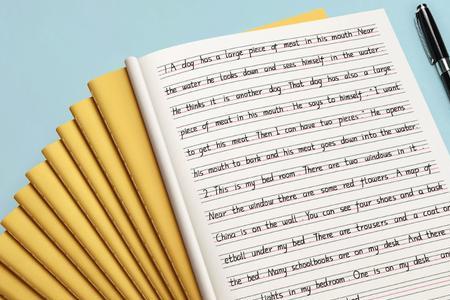 1. A dog has a large piece of meat in his mouth Near
the water he looks down and sees himself in the water.
He thinks it is another dog. That dog has also a large
piece of meat in his mouth. He says to himself "I want
to get his meat. Then I can have two pieces." He opens
his mouth to bark and his meat goes down into the water.
2. This is my bed room. There are two windows in it.
Near the window there are some red flowers. A map of
China is on the wall. You can see four shoes and a bask
etball under my bed. There are trousers and a coat on
the bed. Many schoolbooks are on my desk. And there
lights in my bedroom. One is on my desk and